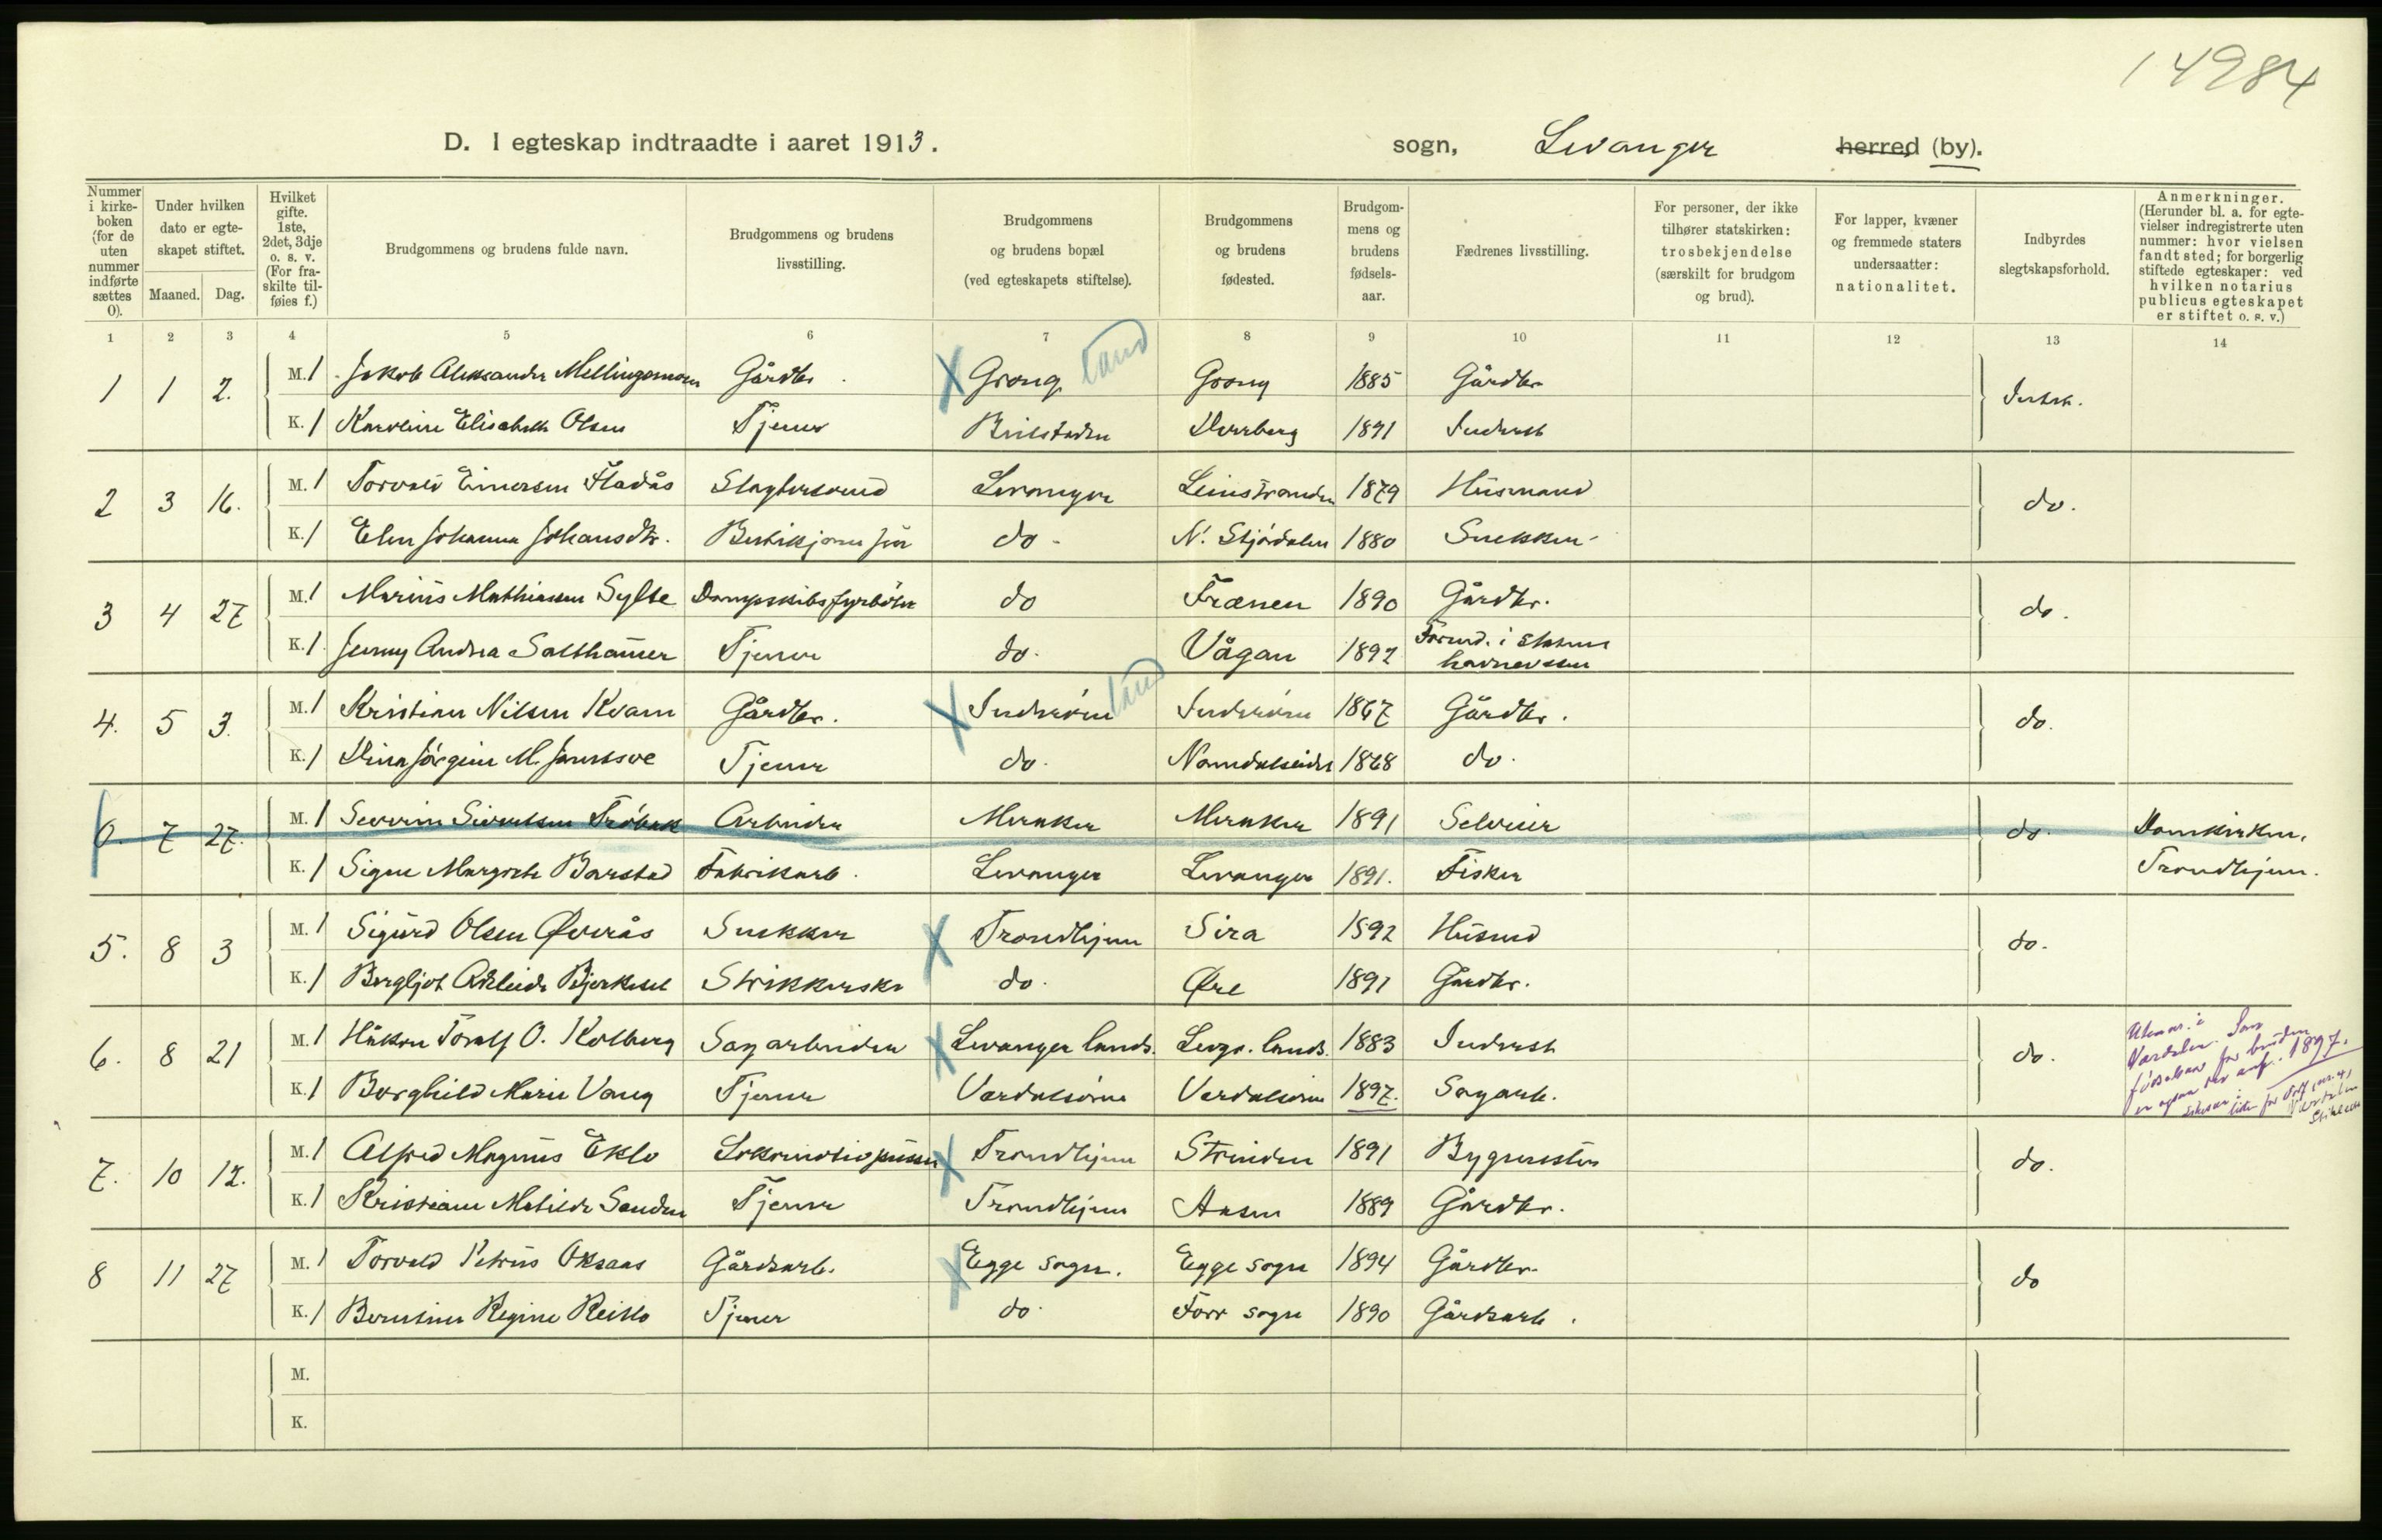 14984
D. I egteskap indtraadte i aaret 1913.
sogn, Levanger herred (by).
Nummer i kirkeboken (for de uten nummer indførte sættes 0).
Under hvilken dato er egteskapet stiftet.
Maaned. Dag.
Hvilket gifte. 1ste, 2det, 3dje o. s. v. (For fraskilte tilføies f.)
Brudgommens og brudens fulde navn.
Brudgommens og brudens livsstilling.
Brudgommens og brudens bopæl (ved egteskapets stiftelse).
Brudgommens og brudens fødested.
Brudgommens og brudens fødselsaar.
Fædrenes livsstilling.
For personer, der ikke tilhører statskirken: trosbekjendelse (særskilt for brudgom og brud).
For lapper, kvæner og fremmede staters undersaatter: nationalitet.
Indbyrdes slegtskapsforhold.
Anmerkninger. (Herunder bl. a. for egtevielser indregistrerte uten nummer: hvor vielsen fandt sted; for borgerlig stiftede egteskaper: ved hvilken notarius publicus egteskapet er stiftet o. s. v.)
1 2 3 4 5 6 7 8 9 10 11 12 13 14
1 1 2. M. 1 Jakob Aleksander Mellingsmoen Gårdbr. X Grong land Grong 1885 Gårdbr
K. 1 Karoline Elisabeth Olsen Tjener 1891
2 3 16. M. 1 Torvald Einersen Fladås Slagtersvend Levanger Leinstranden 1879 Husmand do.
K. 1 Elen Johanna Johansdtr. do - N. Stjørdalen 1880 Snekker
3 4 27 M. 1 Marius Mathiassen Sylte Dampskibsfyrbøter do Frænen 1890 Gårdbr. do.
K. 1 Jenny Andrea Salthamer Tjener do. Vågan 1892 i Statens havnevesen
4. 5 3. M. 1 Kristian Nilsen Kvam Gårdbr. X Inderøen land Inderøen 1867 Gårdbr. do.
K. 1 M. Tjener do. Namdalseidet 1868 do.
0. 7 27. M. 1 Severin Sivertsen Arbeider Meraker Meraker 1891 Selveier do. Domkirken,
K. 1 Signe Margrete Barstad Fabrikarb. Levanger Levanger 1891. Fisker Trondhjem.
5. 8 3 M. 1 Sigurd Olsen Øverås Snekker X Trondhjem Sira 1892 Husmd do.
K. 1 Bergljot Adeleide Bjerkeset Strikkerske do. Øre 1891 Gårdbr.
6. 8 21 M. 1 Håkon Toralf O. Kolberg Sagarbeider X Levanger lands. Levgr. lands. 1883 Inderst do. Som
K. 1 Borghild Marie Vang Tjener Værdalsøren Verdalsøren 1897. Sagarb. fødselsaar for bruden er ogsaa her anf. 1897.
7. 10 12. M. 1 Alfred Magnus Eklo Lokomotivpusser X Trondhjem Strinden 1891 Bygmester do.
K. 1 Kristiane Matilde Sanden Tjener Trondhjem Aasen 1889 Gårdbr.
8 11 27 M. 1 Torvald Petrus Oksaas Gårdsarb. X Egge sogn. Egge sogn 1894 Gårdbr. do
K. 1 Berntine Regine Tjener do. Forr sogn 1890 Gårdsarb.
M.
K.